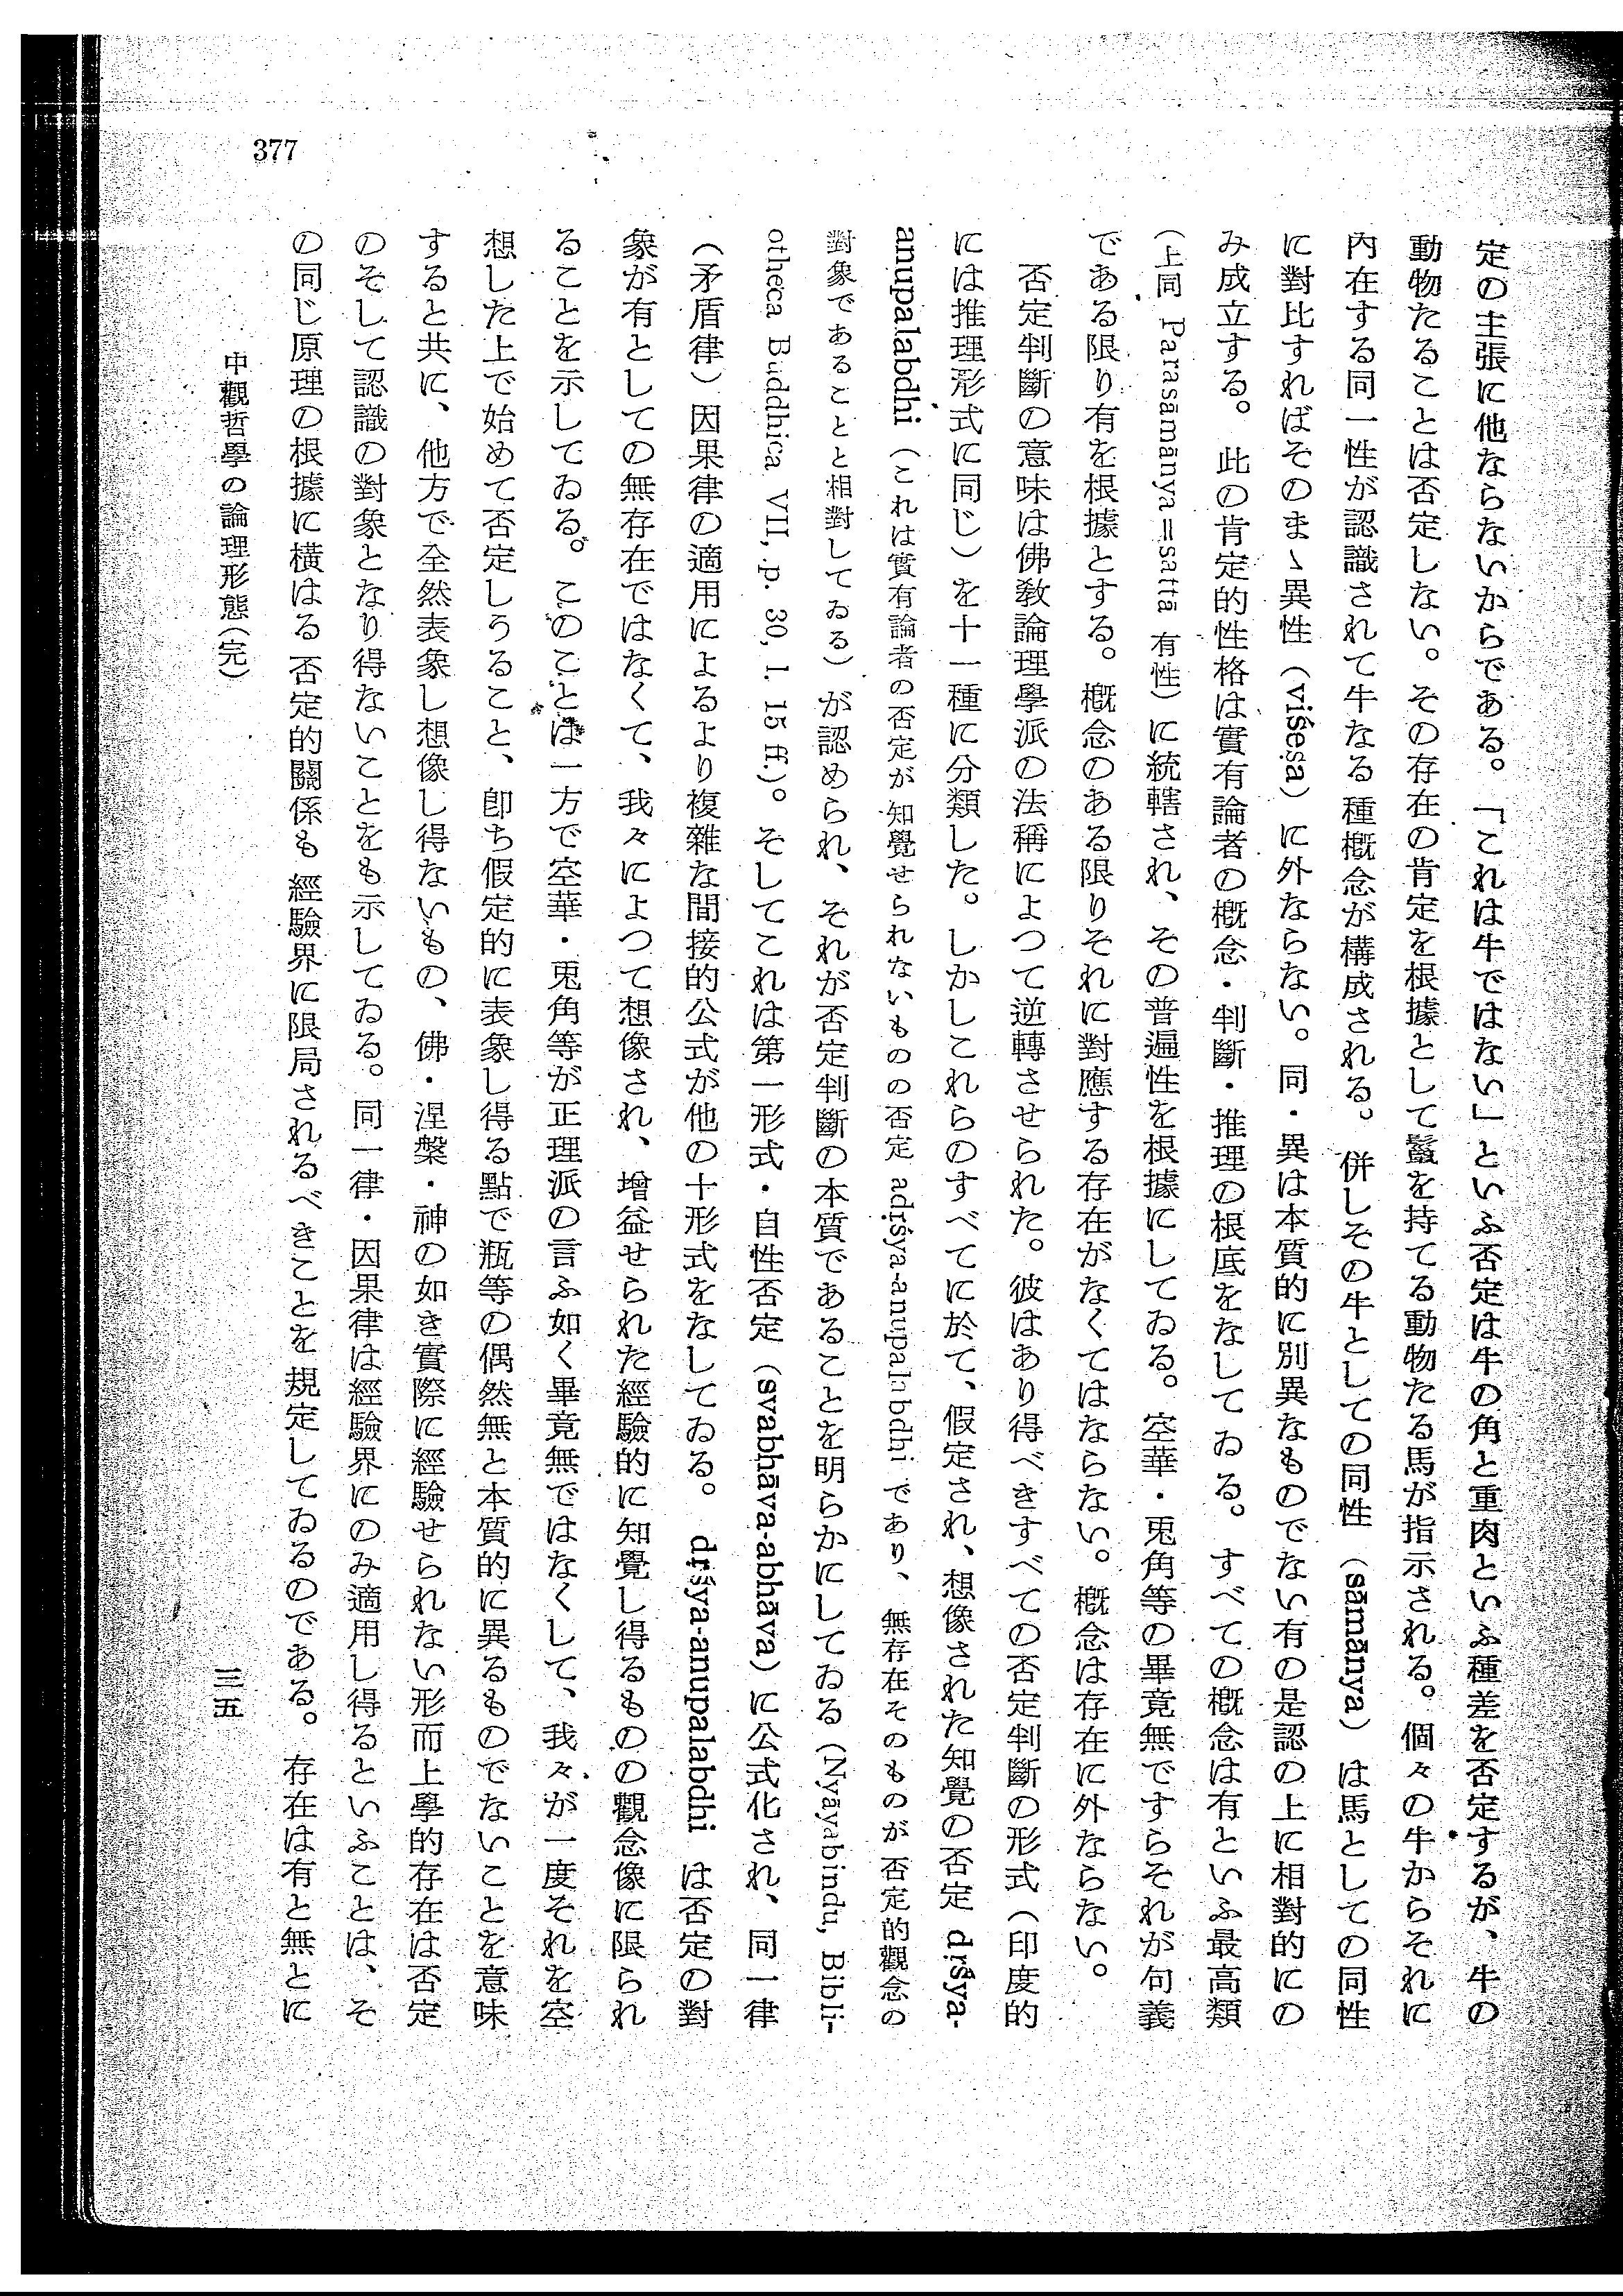 定の主張に他ならないからである。「これは牛ではない」といふ否定は牛の角と重肉といふ種差を否定するが、牛の
動物たることは否定しない。その存在の肯定を根據として鬣を持てる動物たる馬が指示される。個々の牛からそれに
內在する同一性が認識されて牛なる種槪念が構成される。併しその牛としての同性（sāmānya）は馬としての同性
に對比すればそのまゝ異性（viśeṣa）に外ならない。同・異は本質的に別異なものでない有の是認の上に相對的にの
み成立する。此の肯定的性格は實有論者の槪念・判斷・推理の根底をなしてゐる。すべての槪念は有といふ最高類
（上同 Parasāmānya＝sattā 有性）に統轄され、その普遍性を根據にしてゐる。空華・兎角等の畢竟無ですらそれが句義
である限り有を根據とする。槪念のある限りそれに對應する存在がなくてはならない。槪念は存在に外ならない。
否定判斷の意味は佛敎論理學派の法稱によつて逆轉させられた。彼はあり得べきすべての否定判斷の形式（印度的
には推理形式に同じ）を十一種に分類した。しかしこれらのすべてに於て、假定され、想像された知覺の否定 dṛśya-
anupalabdhi（これは實有論者の否定が知覺せられないものの否定 adṛśya-anupalabdhi であり、無存在そのものが否定的觀念の
對象であることと相對してゐる）が認められ、それが否定判斷の本質であることを明らかにしてゐる（Nyāyabindu, Bibli-
otheca Buddhica VII, p. 30, l. 15 ff.）。そしてこれは第一形式・自性否定（svabhāva-abhāva）に公式化され、同一律
（矛盾律）因果律の適用によるより複雜な間接的公式が他の十形式をなしてゐる。dṛśya-anupalabdhi は否定の對
象が有としての無存在ではなくて、我々によつて想像され、增益せられた經驗的に知覺し得るものの觀念像に限られ
ることを示してゐる。このことは一方で空華・兎角等が正理派の言ふ如く畢竟無ではなくして、我々が一度それを空
想した上で始めて否定しうること、卽ち假定的に表象し得る點で瓶等の偶然無と本質的に異るものでないことを意味
すると共に、他方で全然表象し想像し得ないもの、佛・涅槃・神の如き實際に經驗せられない形而上學的存在は否定
のそして認識の對象となり得ないことをも示してゐる。同一律・因果律は經驗界にのみ適用し得るといふことは、そ
の同じ原理の根據に橫はる否定的關係も經驗界に限局されるべきことを規定してゐるのである。存在は有と無とに
中觀哲學の論理形態（完）
三五
377